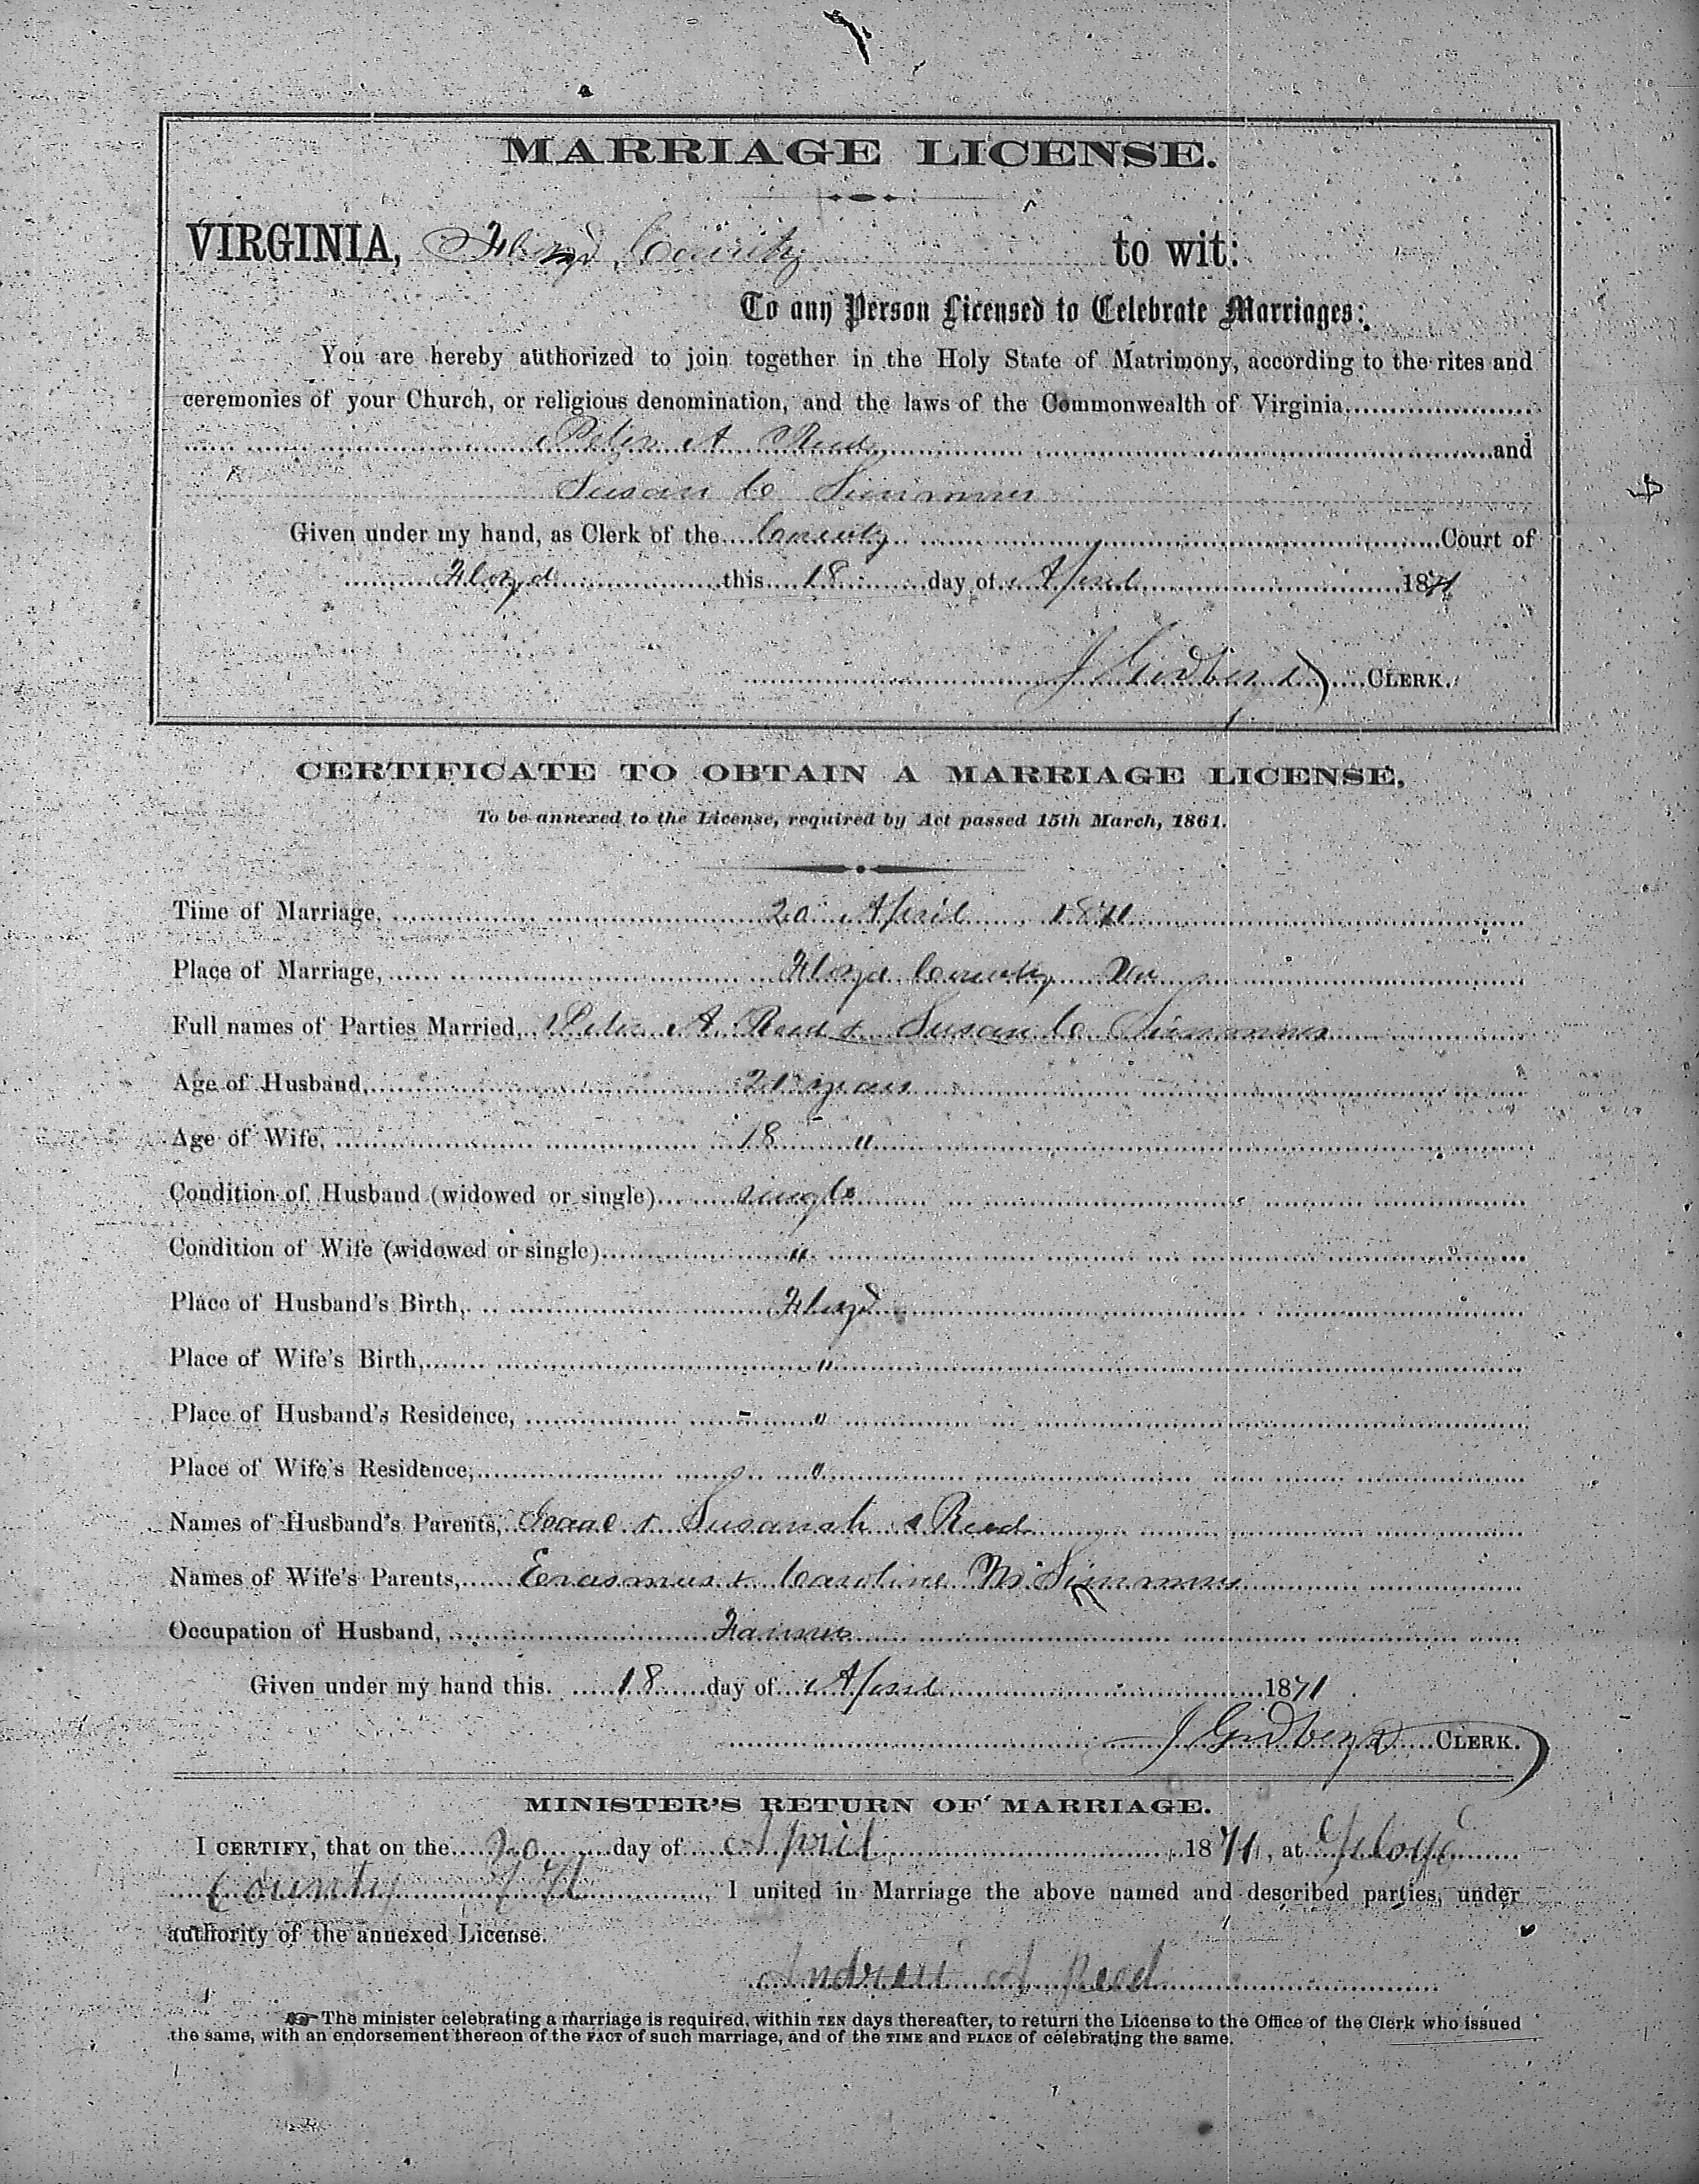 MARRIAGE LICENSE.
VIRGINIA, Floyd County to wit:
To any Person Licensed to Celebrate Marriages:
You are hereby authorized to join together in the Holy State of Matrimony, according to the rites and
ceremonies of your Church, or religious denomination, and the laws of the Commonwealth of Virginia
Peter A Reed and
Susan C Simmons
Given under my hand, as Clerk of the County Court of
Floyd this 18 day of April 1871
J CLERK.
CERTIFICATE TO OBTAIN A MARRIAGE LICENSE,
To be annexed to the License, required by Act passed 15th March, 1861.
Time of Marriage, 20 April 1871
Place of Marriage, Floyd County Va
Full names of Parties Married, Peter A. Reed & Susan C. Simmons
Age of Husband, 21 years
Age of Wife, 18 "
Condition of Husband (widowed or single) single
Condition of Wife (widowed or single) "
Place of Husband's Birth, Floyd
Place of Wife's Birth, "
Place of Husband's Residence, "
Place of Wife's Residence, "
Names of Husband's Parents, Isaac & Susanah Reed
Names of Wife's Parents, Erasmus & Caroline M Simmons
Occupation of Husband, Farmer
Given under my hand this 18 day of April 1871
J CLERK.
MINISTER'S RETURN OF MARRIAGE.
I CERTIFY, that on the 20 day of April, 1871, at Floyd
County VA, I united in Marriage the above named and described parties, under
authority of the annexed License.
Andrew A Reed
The minister celebrating a marriage is required, within TEN days thereafter, to return the License to the Office of the Clerk who issued
the same, with an endorsement thereon of the FACT of such marriage, and of the TIME and PLACE of celebrating the same.